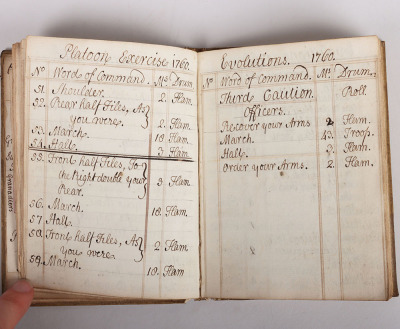 Platoon Exercise 1760.
No Words of Command. Ms Drum
51. Shoulder. 2. Flam.
52. Rear half Files, As
you were. 2. Flam.
53. March. 10. Flam.
54. Halt. 3. Flam
55. Front half Files, To
the Right double your
Rear. 3 Flam
56. March. 10. Flam
57. Halt.
58. Front half Files, As
you were. 2 Flam
59. March. 10. Flam
Evolutions. 1760.
No Word of Command. Ms Drum.
Third Caution. Roll
Officers.
Recover your Arms 2 Flam.
March. Troop.
Halt. Flam.
Order your Arms. 2. Flam.